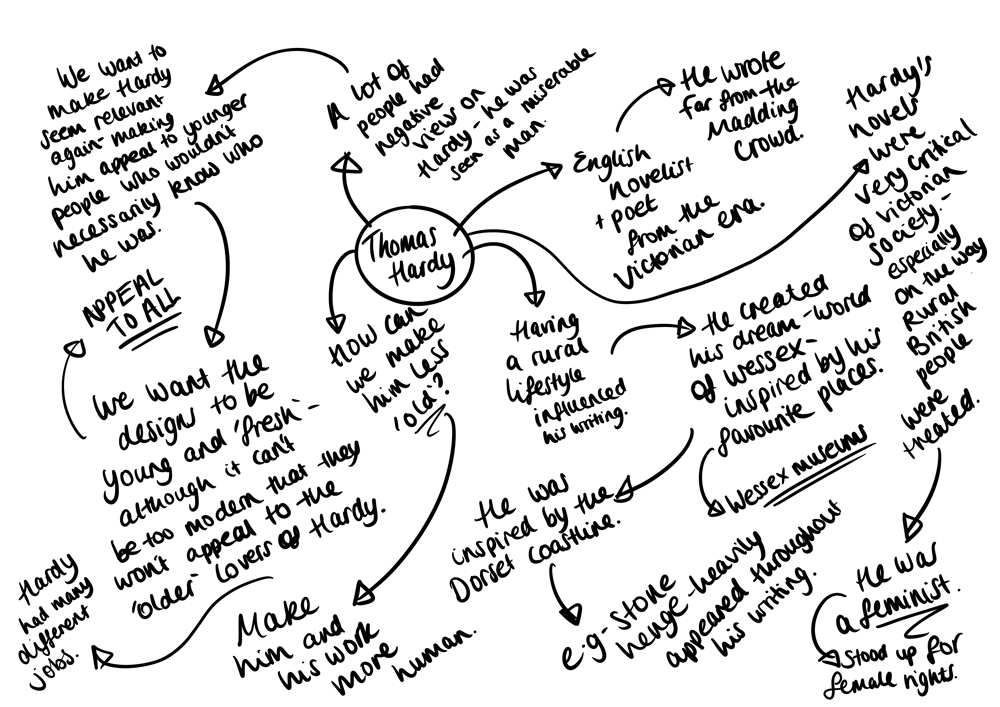 Thomas
Hardy
A lot of
people had
negative
view on
Hardy - he was
seen as a miserable
man.
We want to
make Hardy
seem relevant
again - making
him appeal to younger
people who wouldn't
necessarily know who
he was.
We want the
designs to be
young and 'fresh' -
although it can't
be too modern that they
won't appeal to the
'older' lovers of Hardy.
APPEAL
TO ALL
Hardy
had many
different
jobs.
How can
we make
him less
'old'?
Make
him and
his work
more
human.
English
novelist
+ poet
from the
Victorian era.
He wrote
Far from the
Madding
Crowd.
Having
a rural
lifestyle
influenced
his writing.
He created
his dream-world
of Wessex -
inspired by his
favourite places.
Wessex museums
He was
inspired by the
Dorset coastline.
e.g - Stone
henge - heavily
appeared throughout
his writing.
Hardy's
novels
were
very critical
of victorian
society. -
especially
on the way
Rural
British
people
were
treated.
He was
a feminist.
Stood up for
female rights.